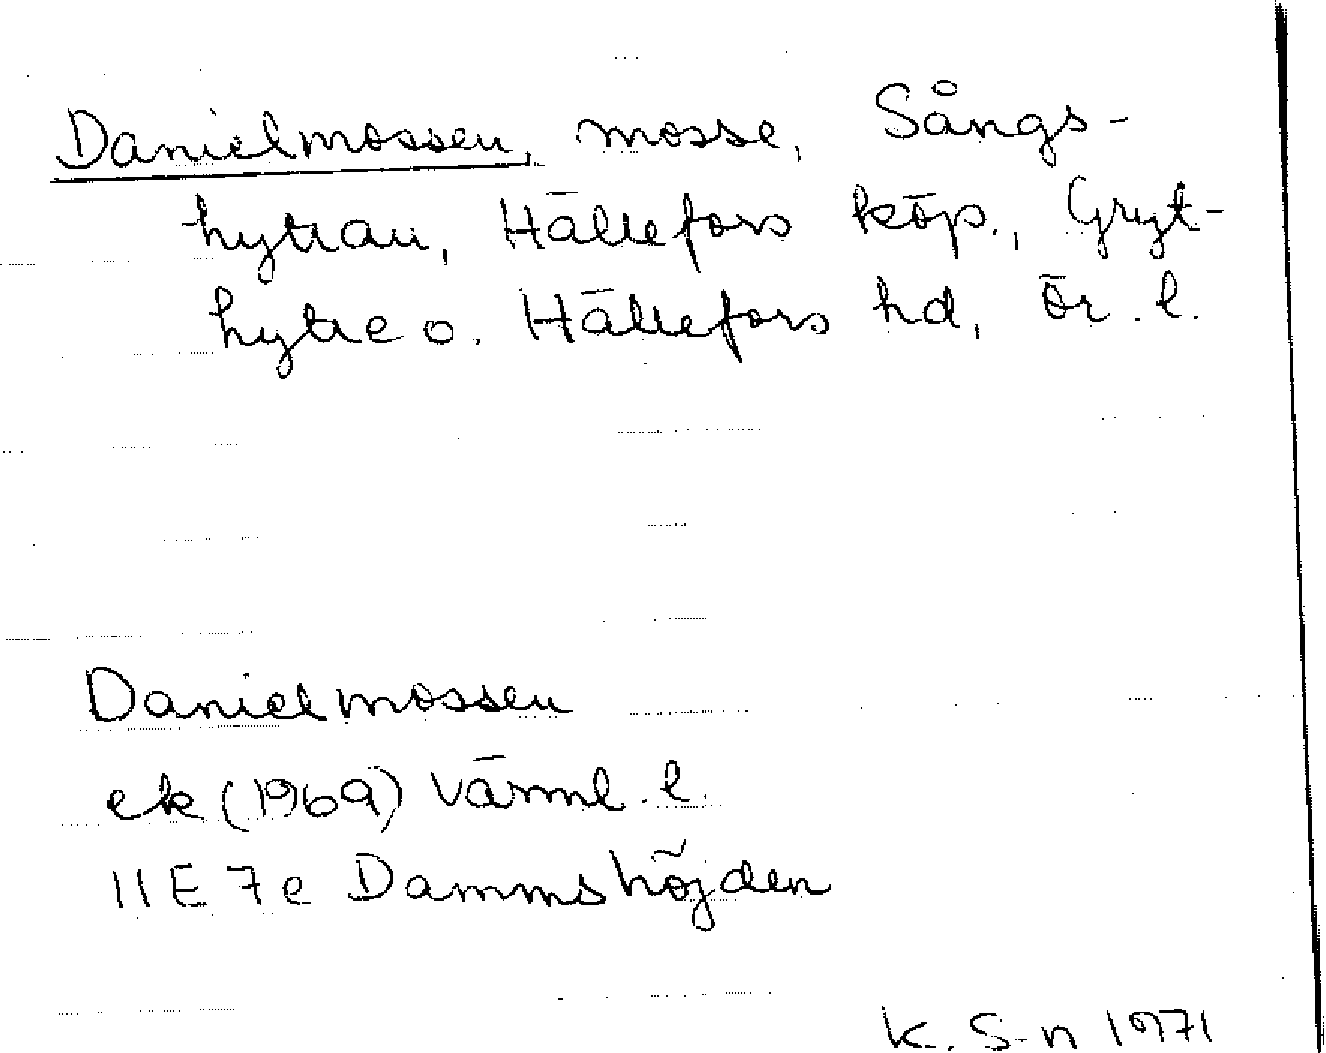 Danielmossen, mosse, Sångs-
hyttan, Hällefors köp., Gryt-
hytte o. Hällefors hd, Ör. l.
Danielmossen
ek (1969) Värml. l.
11E 7e Dammshöjden
K. S-n 1971